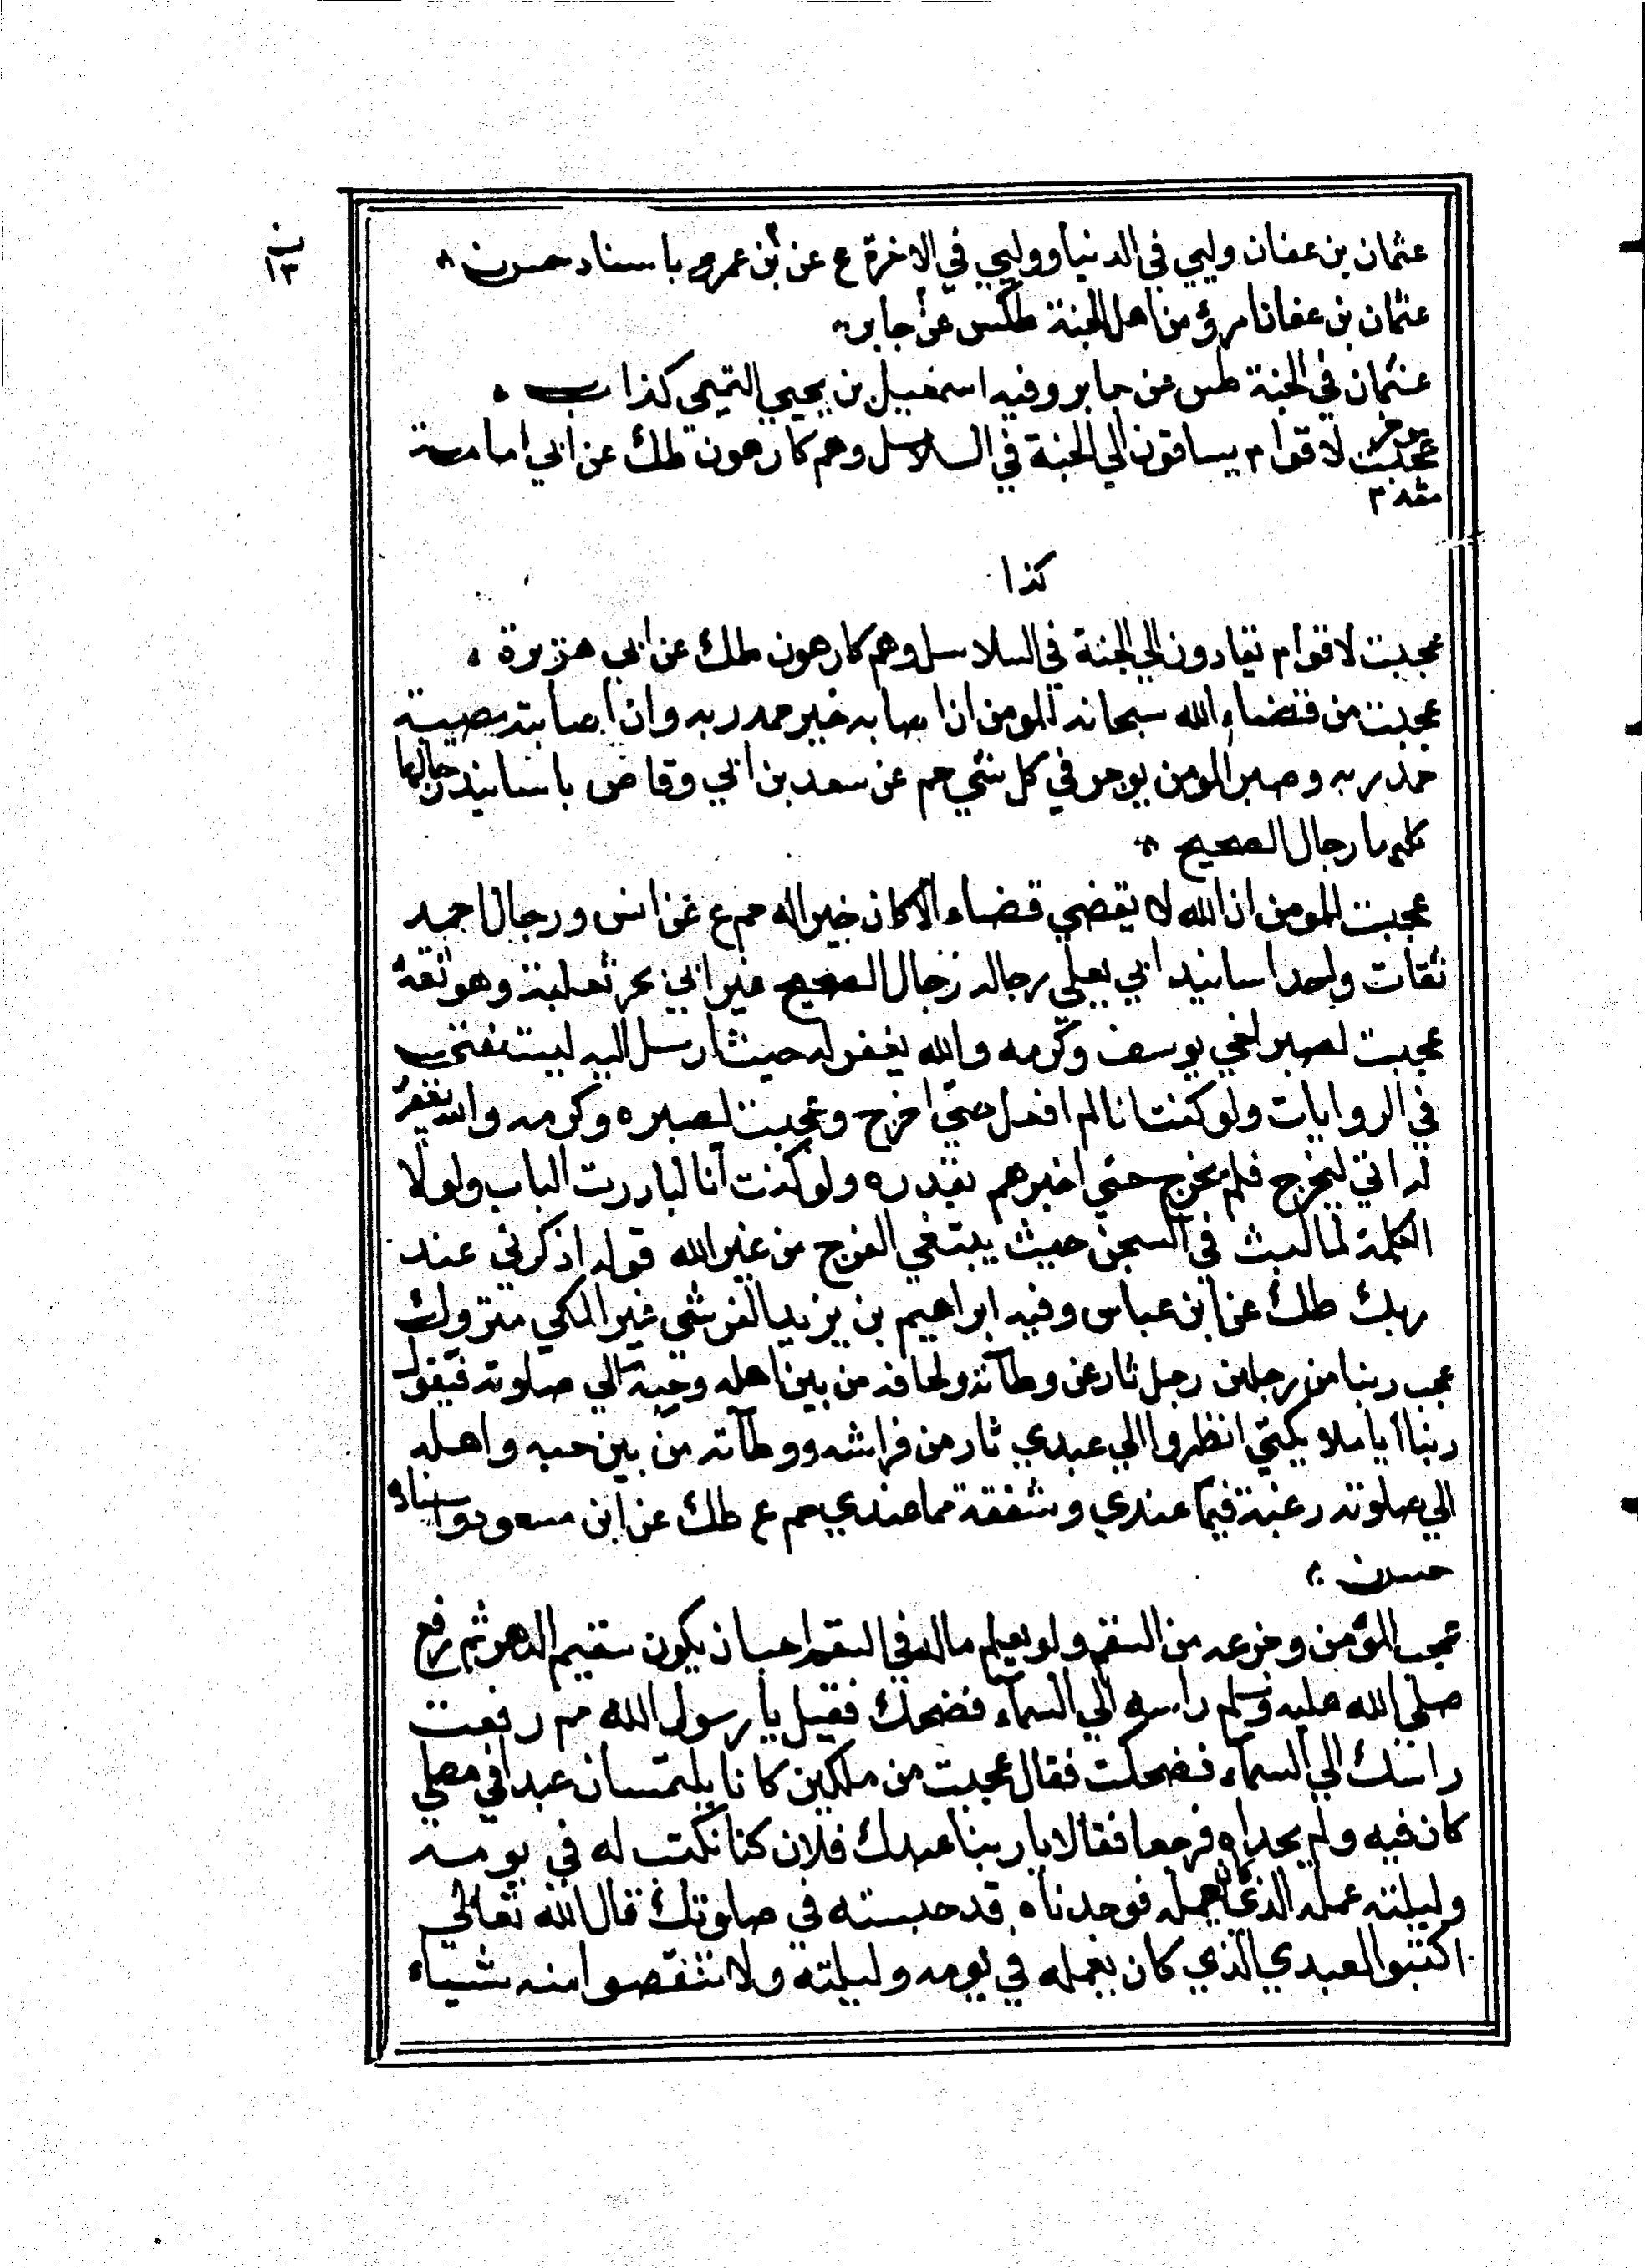 ن
١٣
عثمان بن عفان وليي في الدنيا ووليي في الاخرة ع عن بن عمرو باسناد حسن
عثمان بن عفان امرؤ من اهل الجنة طكس عن جابر
عثمان في الجنة طس عن جابر وفيه اسمعيل بن يحيي التيمي كذاب
موخر
عجبت لاقوام يساقون الي الجنة في السلاسل وهم كارهون طك عن ابي امامة
مقدم
كذا
عجبت لاقوام يقادون الي الجنة في السلاسل وهم كارهون طك عن ابي هريرة
عجبت من قضاء الله سبحانه للمومن ان اصابه خير حمد ربه وان اصابته مصيبة
حمد ربه وصبر المومن يوجر في كل شي حم عن سعد بن ابي وقاص باسانيد رجالها
كلها رجال الصحيح
عجبت للمومن ان الله لا يقضي قضاء الا كان خيرا له حم ع عن انس ورجال احمد
ثقات واحد اسانيد ابي يعلي رجاله رجال الصحيح غير ابي بحر ثعلبة وهو ثقة
عجبت لصبر اخي يوسف وكرمه والله يغفر له حيث ارسل اليه ليستفتي
في الروايات ولو كنت انا لم افعل حتي اخرج وعجبت لصبره وكرمه والله يغفر
له اتي ليخرج فلم يخرج حتي اخبرهم بعذره ولو كنت انا لبادرت الباب ولولا
الكلمة لما لبث في السجن حيث يبتغي الفرج من غير الله قوله اذكرني عند
ربك طك عن ابن عباس وفيه ابراهيم بن يزيد القرشي غير المكي متروك
عجب ربنا من رجلين رجل ثار عن وطآئه ولحافه من بين اهله وحبه الي صلوته فيقول
ربنا أيا ملائكتي انظروا الي عبدي ثار من فراشه ووطآئه من بين حبه واهله
الي صلوته رغبة فيما عندي وشفقة مما عندي حم ع طك عن ابن مسعود واسناده
حسن
عجب للمؤمن وجزعه من السقم ولو يعلم ماله في السقم احب ان يكون سقيم الدهر ثم رفع
صلي الله عليه وسلم راسه الي السمآء فضحك فقيل يا رسول الله مم رفعت
راسك الي السمآء فضحكت فقال عجبت من ملكين كانا يلتمسان عبدا في مصلي
كان فيه ولم يجداه فرجعا فقالا يا ربنا عبدك فلان كنا نكتب له في يومه
وليلته عمله الذي كان يعمله فوجدناه قد حبسته في صلوتك قال الله تعالي
اكتبوا لعبدي الذي كان يعمله في يومه وليلته ولا تنقصوا منه شياء